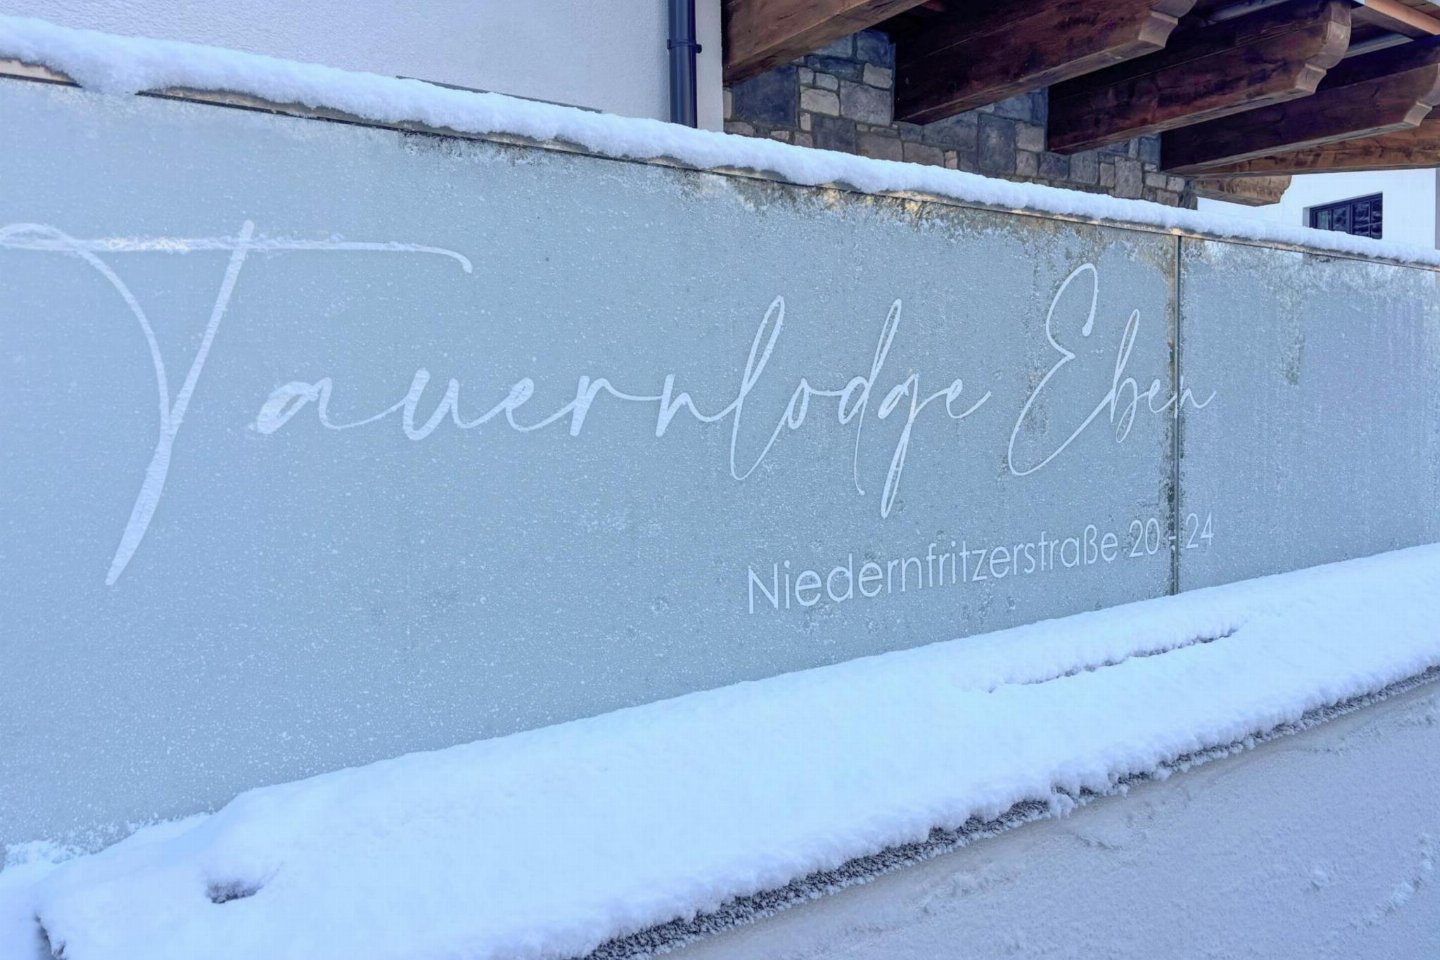 Tauernlodge Eben
Niedernfritzerstraße 20 - 24